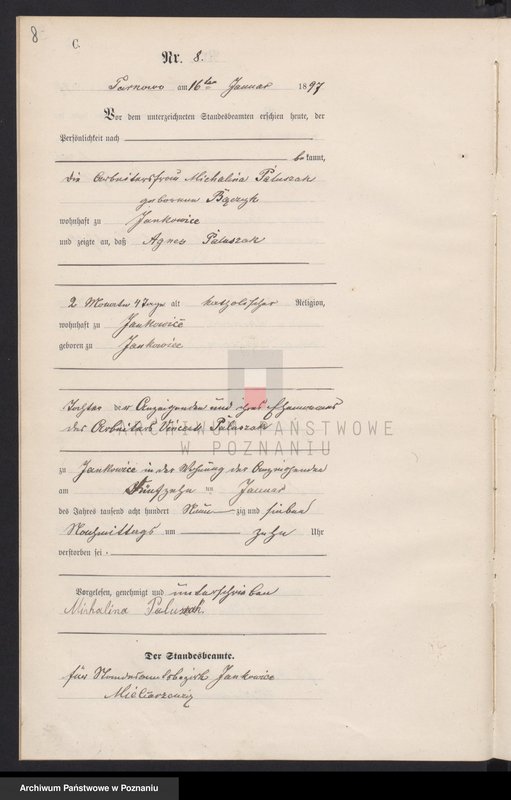 8
C.
Nr. 8.
Tarnowo am 16ten Januar 1897
Vor dem unterzeichneten Standesbeamten erschien heute, der
Persönlichkeit nach
bekannt,
die Arbeitersfrau Michalina Paluszak
geborene Bączyk
wohnhaft zu Jankowice
und zeigte an, daß Agnes Paluszak
2 Monate 4 Tage alt katholischer Religion,
wohnhaft zu Jankowice
geboren zu Jankowice
Tochter der Anzeigenden und ihres Ehemannes
des Arbeiters Vincent Paluszak
ARCHIWUM PAŃSTWOWE
W POZNANIU
zu Jankowice in der Wohnung der Anzeigenden
am Fünfzehn ten Januar
des Jahres tausend acht hundert Neun zig und sieben
Nachmittags um zehn Uhr
verstorben sei.
Vorgelesen, genehmigt und unterschrieben
Michalina Paluszak.
Der Standesbeamte.
für Standesamtsbezirk Jankowice
Archiwum Państwowe w Poznaniu